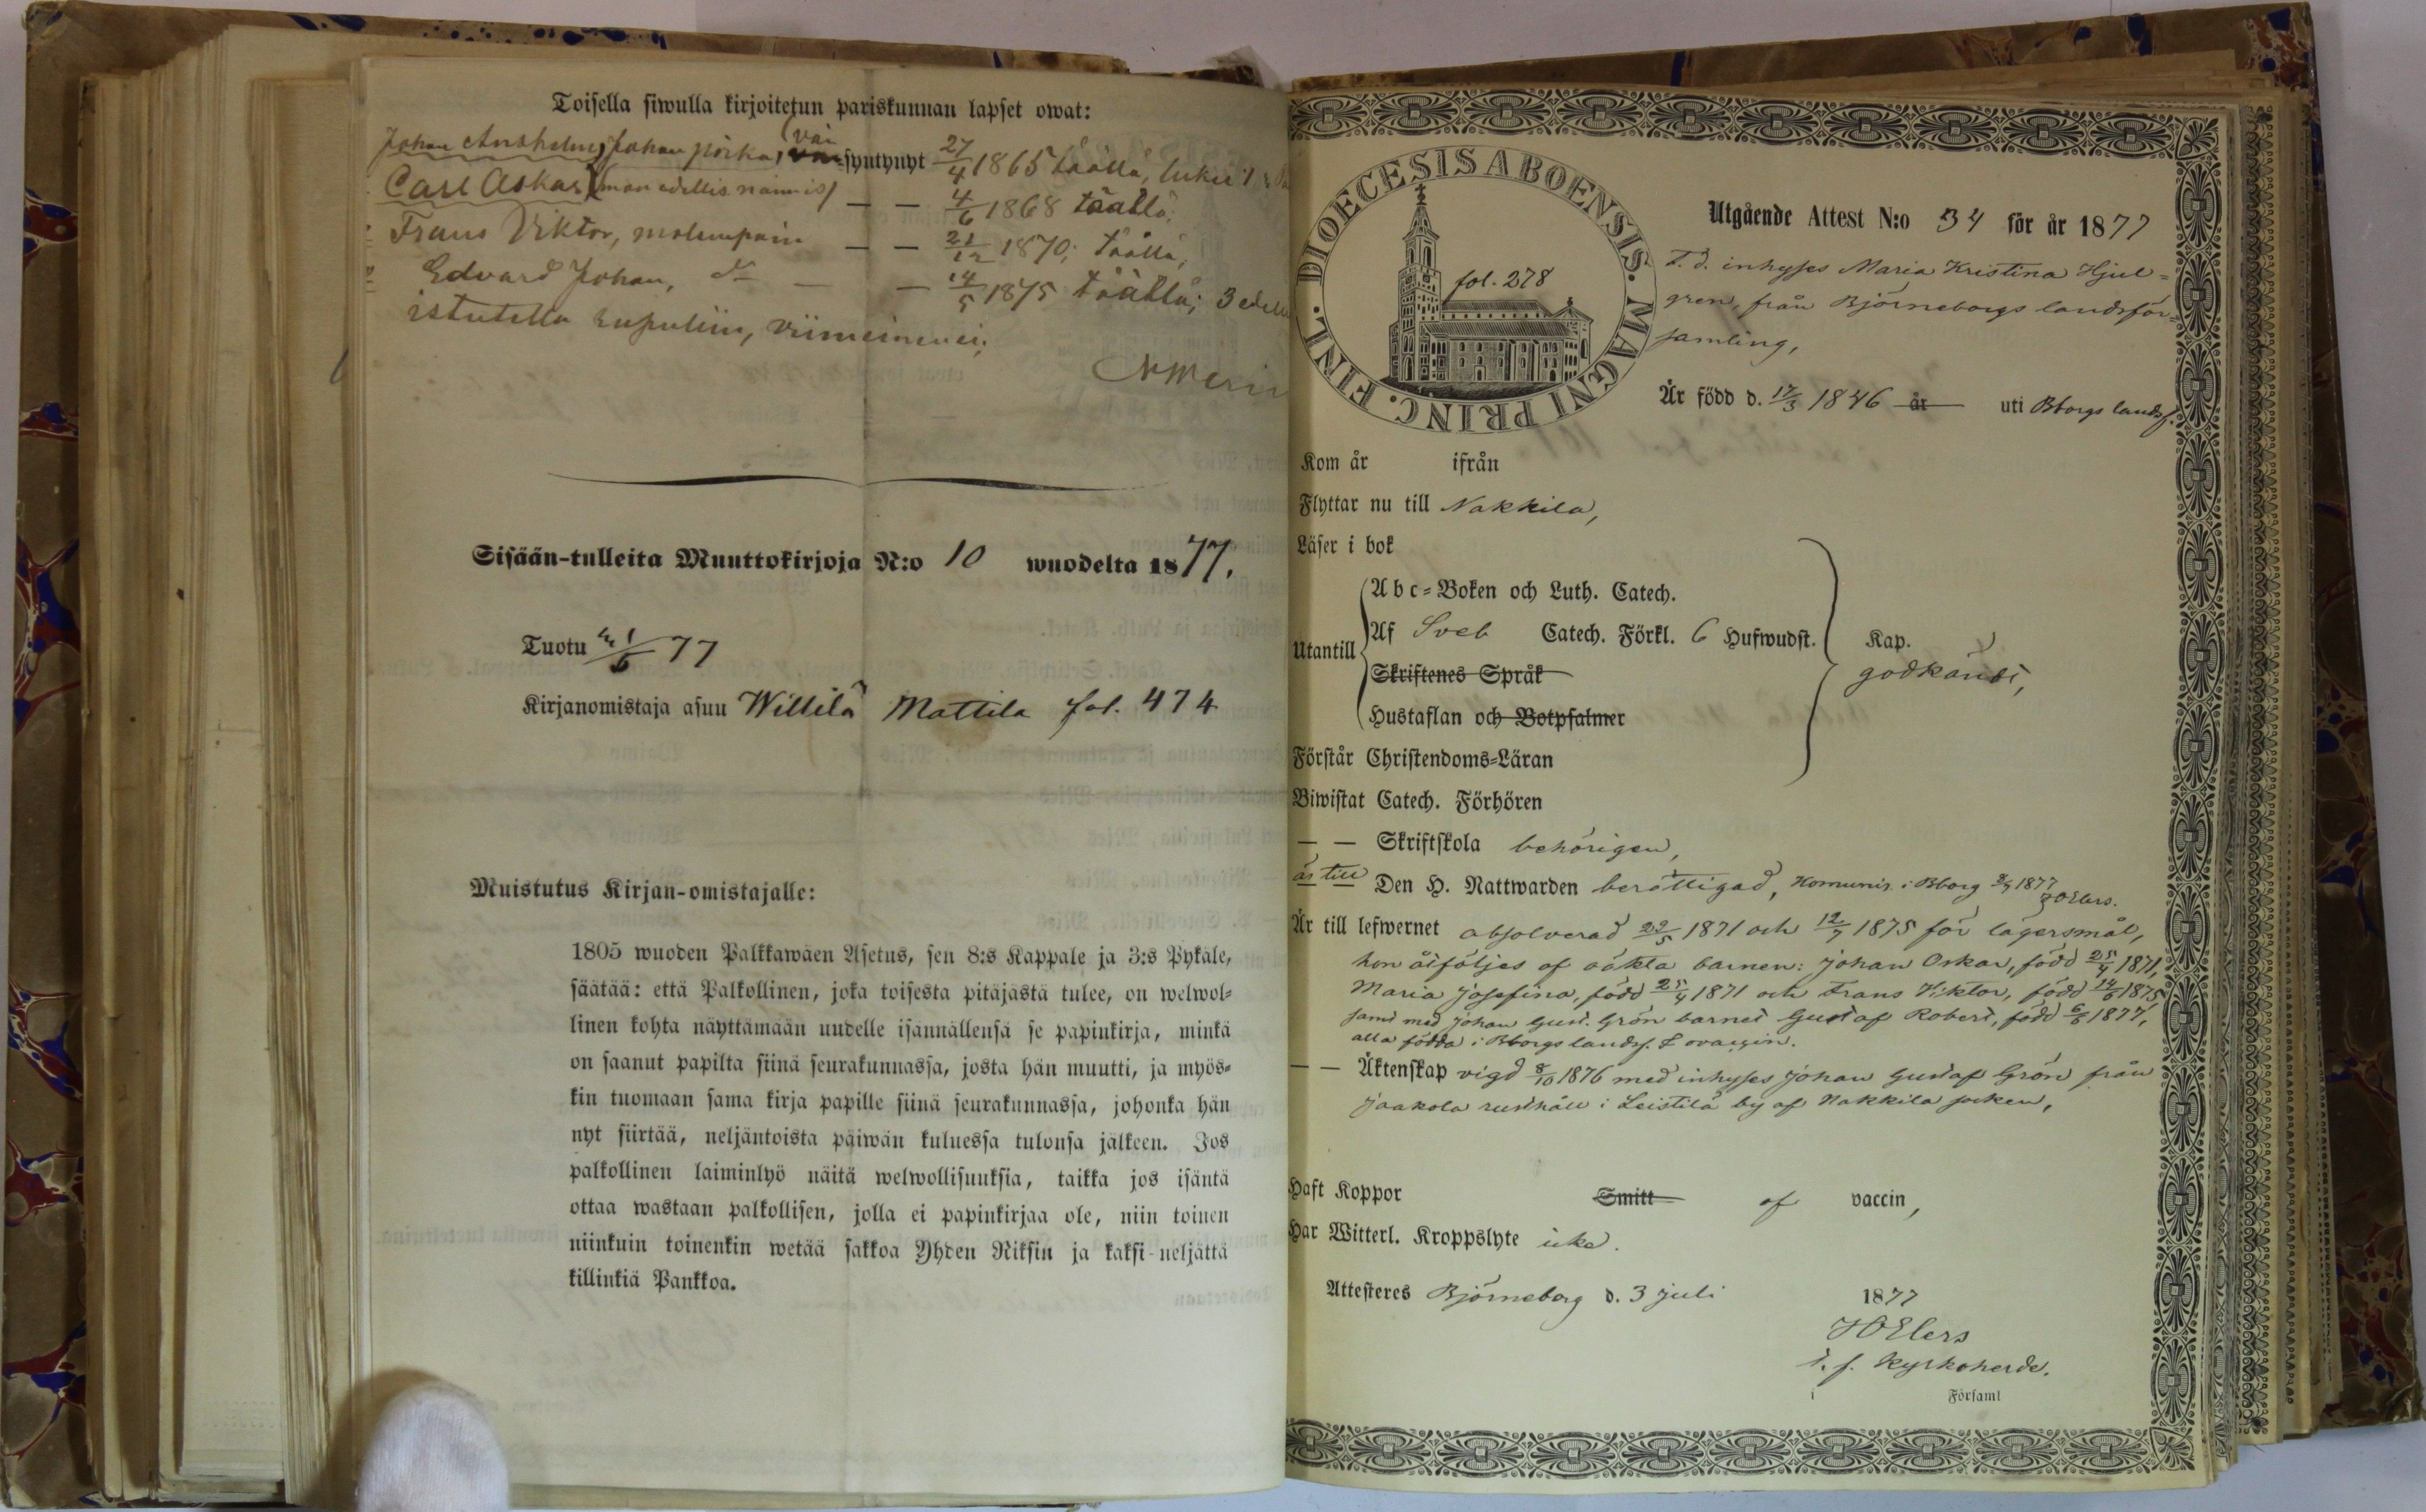 Toisella siwulla kirjoitetun pariskunnan lapset owat:
Johan Anshelm, Johan poika, syntynyt 27/4 1865 täällä, lukee
Carl Oskar — — 4/6 1868 täällä,
Frans Viktor, molempain — — 21/12 1870, täällä,
Edvard Johan, — — 14/5 1875 täällä; 3
rupuliin, viimeinen ei.
Sisään-tulleita Muuttokirjoja N:o 10 wuodelta 1877.
Tuotu 77
Kirjanomistaja asuu Willilä Mattila fol. 474
Muistutus Kirjan-omistajalle:
1805 wuoden Palkkawäen Asetus, sen 8:s Kappale ja 3:s Pykäle,
säätää: että Palkollinen, joka toisesta pitäjästä tulee, on welwol=
linen kohta näyttämään uudelle isännällensä se papinkirja, minkä
on saanut papilta siinä seurakunnassa, josta hän muutti, ja myös=
kin tuomaan sama kirja papille siinä seurakunnassa, johonka hän
nyt siirtää, neljäntoista päiwän kuluessa tulonsa jälkeen. Jos
palkollinen laiminlyö näitä welwollisuuksia, taikka jos isäntä
ottaa wastaan palkollisen, jolla ei papinkirjaa ole, niin toinen
niinkuin toinenkin wetää sakkoa Yhden Riksin ja kaksi-neljättä
killinkiä Pankkoa.
DIOECESIS ABOENSIS. MAGNI PRINC. FINL.
fol. 278
Utgående Attest N:o 34 för år 1877
T. d. inhyses Maria Kristina Hjul=
gren, från Björneborgs landsför=
samling,
Är född d. 17/3 1846 år uti Bborgs landsf.
Kom år ifrån
Flyttar nu till Nakkila,
Läser i bok
Utantill
Abc=Boken och Luth. Catech.
Af Sveb Catech. Förkl. 6 Hufwudst. Kap.
godkändt,
Skriftenes Språk
Hustaflan och Botpsalmer
Förstår Christendoms=Läran
Biwistat Catech. Förhören
— — Skriftskola behörigen,
är till Den H. Nattwarden berättigad, Kommunic. i Bborg 1877 JOElers.
Är till lefwernet absolverad 29/5 1871 och 12/7 1875 för lägersmål,
hon åtföljes af oäkta barnen: Johan Oskar, född 25/4 1871,
Maria Josefina, född 25/4 1871 och Frans Viktor, född 14/6 1875
samt med Johan Gust. Grön barnet Gustaf Robert, född 6/6 1877,
alla födda i Bborgs landsf. & ovaccin.
— — Äktenskap vigd 8/10 1876 med inhyses Johan Gustaf Grön från
Jaakola rusthåll i Leistilä by af Nakkila socken,
Haft Koppor Smitt af vaccin,
Har Witterl. Kroppslyte icke.
Attesteres Björneborg d. 3 juli 1877
JOElers
t. f. Kyrkoherde.
i Församl